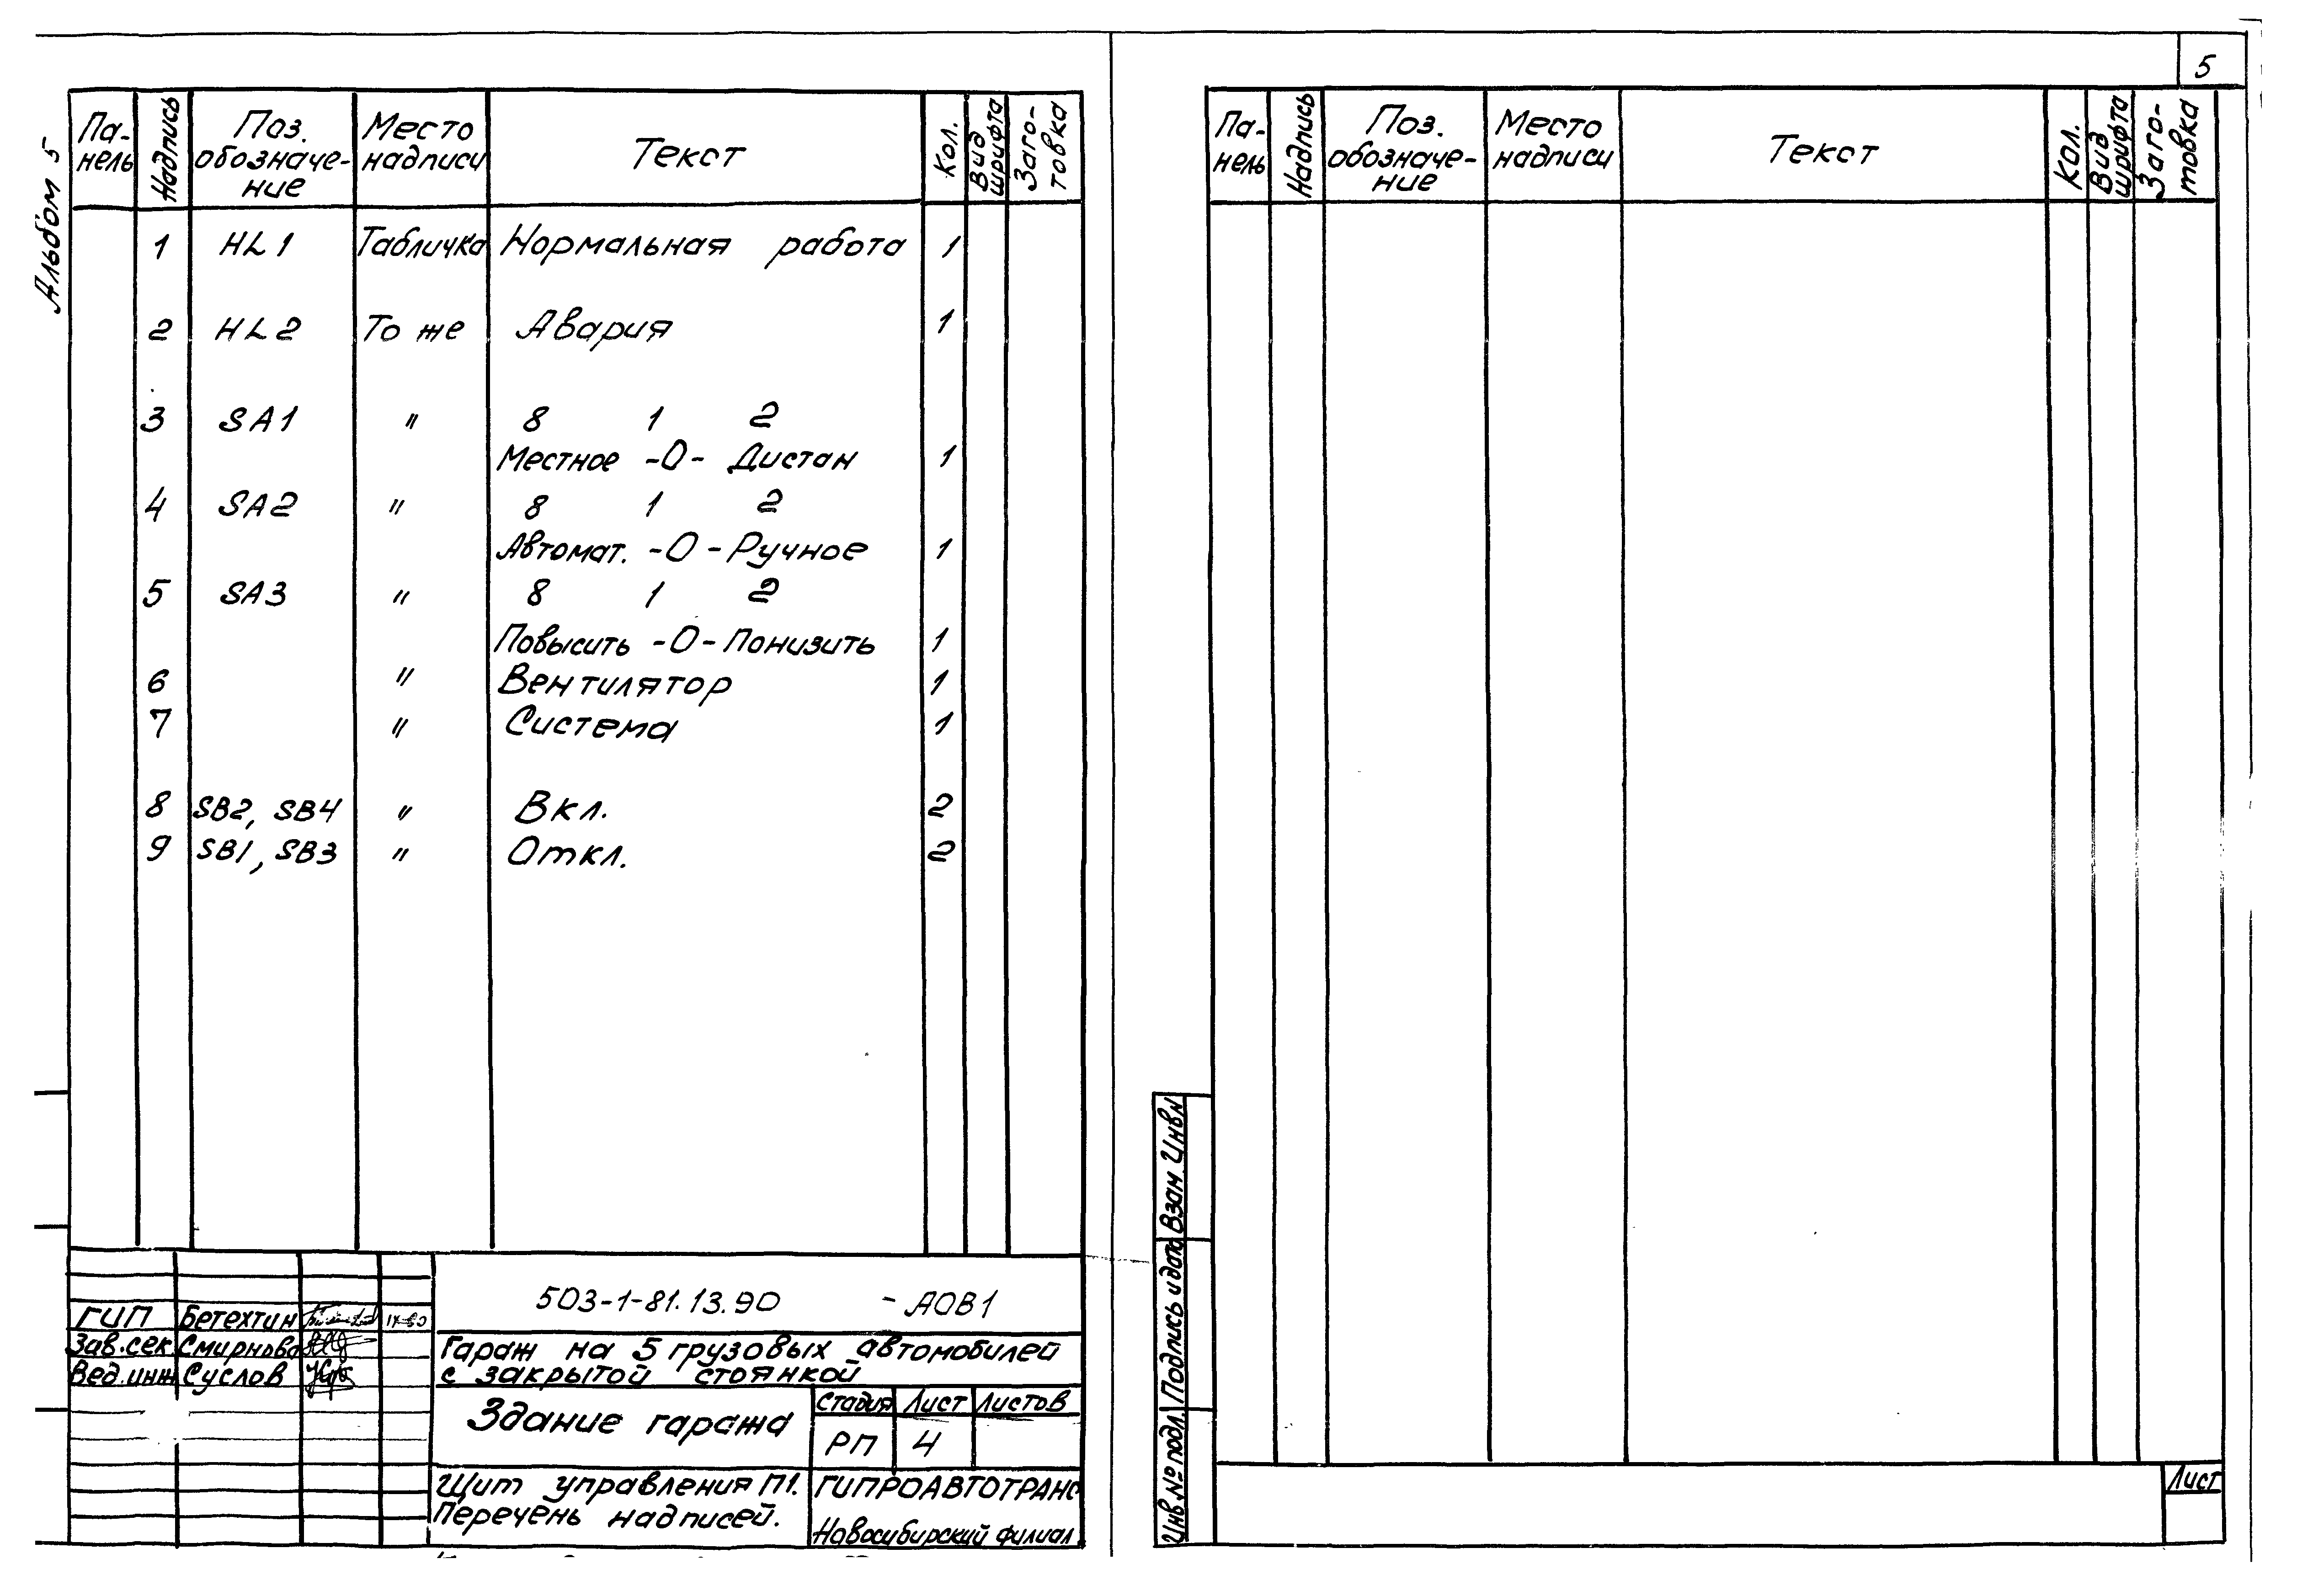 5
Альбом 5
Па-
нель
Надпись
Поз.
обозначе-
ние
Место
надписи
Текст
Кол.
Вид
шрифта
Заго-
товка
1 HL1 Табличка Нормальная работа 1
2 HL2 То же Авария 1
3 SA1 " 8 1 2
Местное -0- Дистан 1
4 SA2 " 8 1 2
Автомат. -0- Ручное 1
5 SA3 " 8 1 2
Повысить -0- Понизить 1
6 " Вентилятор 1
7 " Система 1
8 SB2, SB4 " Вкл. 2
9 SB1, SB3 " Откл. 2
503-1-81.13.90 - АОВ1
ГИП Бетехтин
Зав.сек. Смирнова
Вед.инж Суслов
Гараж на 5 грузовых автомобилей
с закрытой стоянкой
Здание гаража
Стадия Лист Листов
РП 4
Щит управления П1.
Перечень надписей.
ГИПРОАВТОТРАНС
Новосибирский филиал
Па-
нель
Надпись
Поз.
обозначе-
ние
Место
надписи
Текст
Кол.
Вид
шрифта
Заго-
товка
Взам. Инв.№
Подпись и дата
Инв.№подл.
Лист